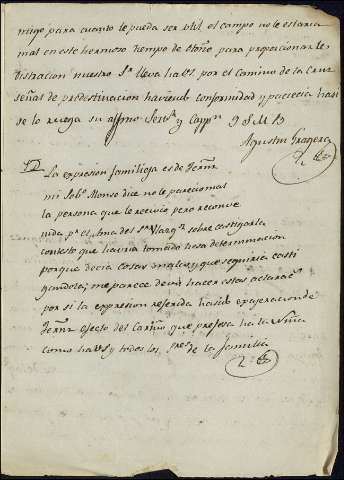 migo para cuanto le pueda ser util el campo no le estaria
mal en este hermoso tiempo de Otoño para proporcionarle
distracion nuestro Sr lleva ha Vs. por el Camino de la Cruz
señal de predestinacion haviendo conformidad y paciencia hasi
se lo ruega su affmo Servr y Cappn Q S M B
Agustin Gragera
La expresion familiosa es de Fernr
mi Sobo Alonso dice no le parecio mal
la persona que le recivio pero reconve
nida pr el Ama del Sr sobre castigarla
contesto que havria tomado hesa determinacion
porque decia cosas y que seguiria casti
gandola; me parece devo hacer estas aclarac
por si la expresion referida ha sido exageracion de
Fernr efecto del Cariño que profesa ha la Niña
como ha Vs y todos los de la familia